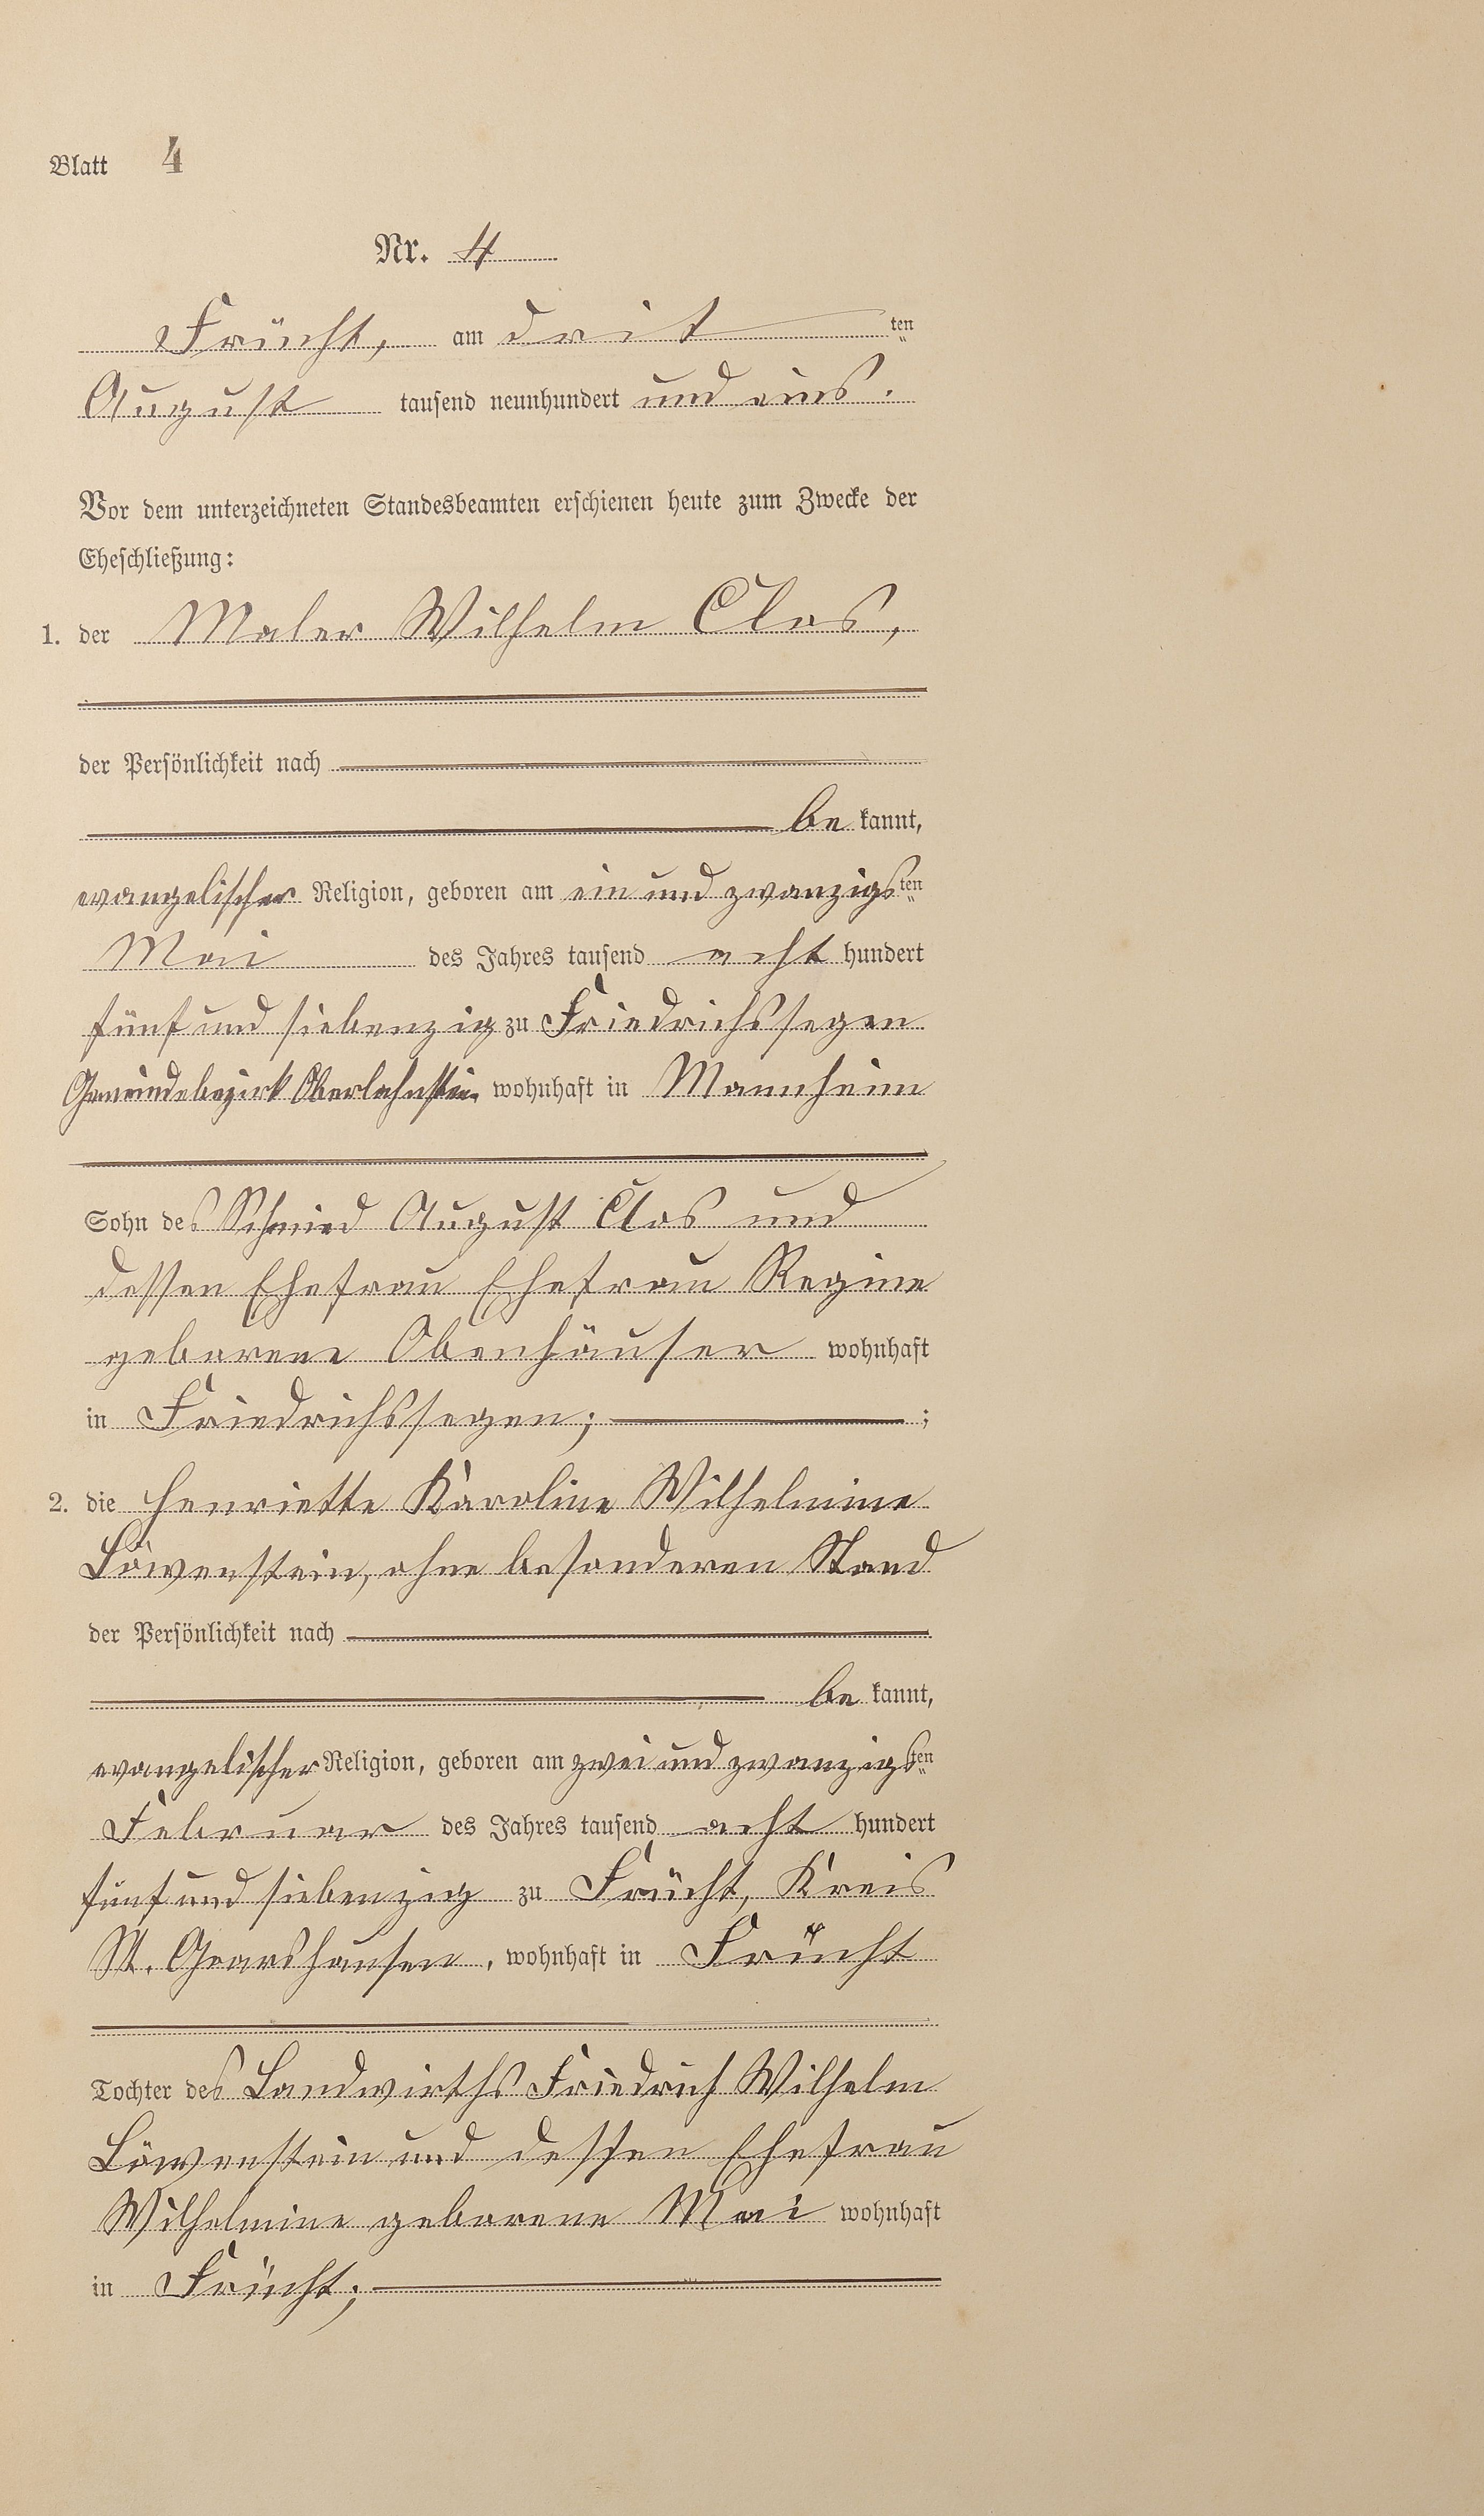 Blatt 4
Nr. 4
Frücht, am drit ten
August tausend neunhundert und eins.
Vor dem unterzeichneten Standesbeamten erschienen heute zum Zwecke der
Eheschließung:
1. der Maler Wilhelm Clos,
der Persönlichkeit nach
be kannt,
evangelischer Religion, geboren am ein und zwanzigsten
Mai des Jahres tausend acht hundert
fünf und siebenzig zu Friedrichssegen
Gemeindebezirk Oberlahnstein, wohnhaft in Mannheim
Sohn des Schmied August Clos und
dessen Ehefrau Ehefrau Regine
geborene Obenhäuser wohnhaft
in Friedrichssegen; ;
2. die Henriette Karoline Wilhelmine
Löwenstein, ohne besonderen Stand
der Persönlichkeit nach
be kannt,
evangelischer Religion, geboren am zwei und zwanzigsten
Februar des Jahres tausend acht hundert
fünf und siebenzig zu Frücht, Kreis
St. Goarshausen, wohnhaft in Frücht
Tochter des Landwirths Friedrich Wilhelm
Löwenstein und dessen Ehefrau
Wilhelmine geborene Mai wohnhaft
in Frücht;